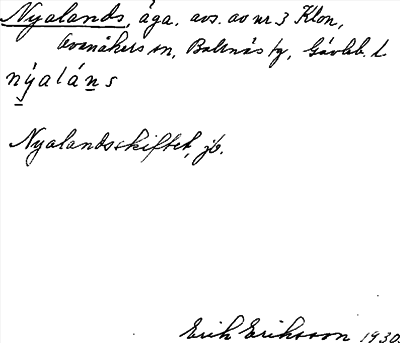 Nyalands, äga. avs. av nr 3 Klon,
Ovanåkers sn, Bollnäs tg, Gävleb. l
nýaláns
Nyalandsskiftet, jb.
Erik Eriksson 1930.